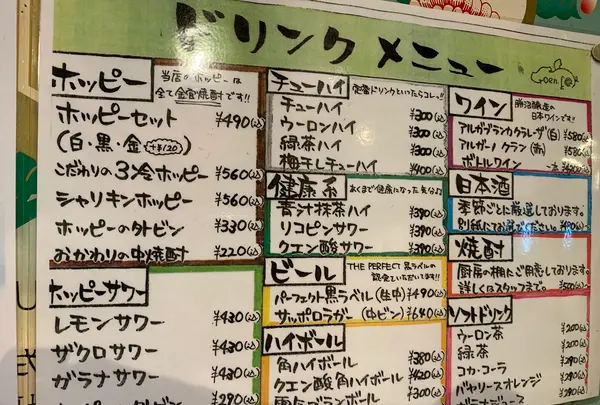 ドリンクメニュー
ホッピー
当店のホッピーは
全て金宮焼酎です!!
ホッピーセット ¥490(込)
(白・黒・金)
こだわりの3冷ホッピー ¥560(込)
シャリキンホッピー ¥560(込)
ホッピーの外ビン ¥330(込)
おかわりの中焼酎 ¥220(込)
ホッピーサワー
レモンサワー ¥430(込)
ザクロサワー ¥430(込)
ガラナサワー ¥430(込)
¥290(込)
チューハイ
チューハイ ¥300(込)
ウーロンハイ ¥300(込)
緑茶ハイ ¥300(込)
梅干しチューハイ ¥400(込)
健康系
あくまで健康になった気分♪
青汁抹茶ハイ ¥390(込)
リコピンサワー ¥390(込)
クエン酸サワー ¥390(込)
ビール
THE PERFECT 黒ラベルの
認定いただいてます!!
パーフェクト黒ラベル(生中) ¥490(込)
サッポロラガー(中ビン) ¥640(込)
ハイボール
角ハイボール ¥380(込)
クエン酸角ハイボール ¥420(込)
¥300(込)
ワイン
勝沼醸造の
日本ワインです!
アルガブランカクラレーザ(白) ¥580(込)
アルガーノクラン(赤) ¥580(込)
ボトルワイン
日本酒
季節ごとに厳選しております。
別紙にてお選びください。
焼酎
厨房の棚にご用意しております。
詳しくはスタッフまで。 ¥500(込)
ソフトドリンク
ウーロン茶 ¥200(込)
緑茶 ¥200(込)
コカ・コーラ ¥290(込)
バヤリースオレンジ ¥290(込)
ガラナジュース